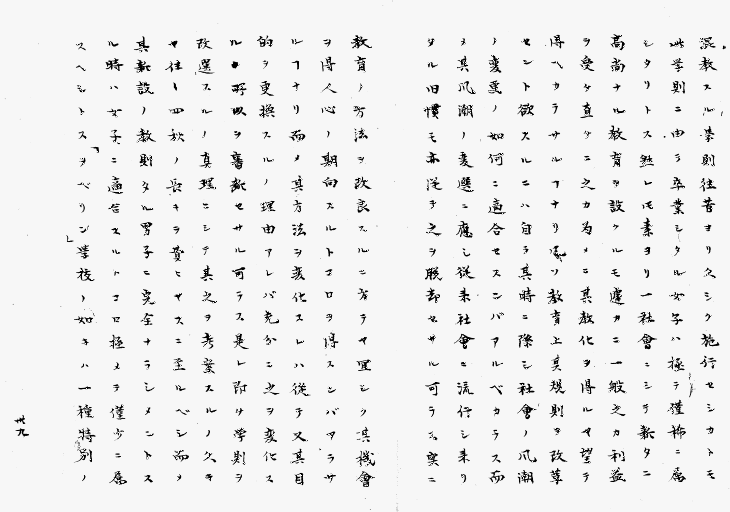 混教スル学則往昔ヨリ久シク施行セシカトモ
此学則ニ由テ卒業シタル女子ハ極テ僅柿ニ属
シタリトス然レモ素ヨリ一社會ニシテ新タニ
高尚ナル教育ヲ設クルモ遽カニ一般之カ利益
ヲ受ケ直ケニ之カ為メニ其教化ヲ得ルヤ望テ
得ヘカラサルヿナリ凡ソ教育上其規則ヲ改革
セント欲スルニハ自ラ其時ニ際シ社會ノ風潮
ノ変更ノ如何ニ適合セスンバアルベカラス而
メ其風潮ノ変遷ニ應シ従来社會ニ流行シ来リ
タル旧慣モ亦従テ之ヲ脱却セサル可ラス実ニ
教育ノ方法ヲ改良スルニ方テヤ宜シク其機會
ヲ得人心ノ期向スルトコロヲ得スンバアラサ
ルヿナリ而メ其方法ヲ変化スレハ従テ又其目
的ヲ更換スルノ理由アレバ充分ニ之ヲ変化ス
ル所以ヲ審判セサル可ラス是レ即ケ学則ヲ
改選スルノ真理ニシテ其之ヲ考案スルノ久キ
ヤ往々四秋ノ長キヲ費ヒヤスニ至ルベシ而メ
其新設ノ教則タル男子ニ完全ナラシメントス
ル時ハ女子ニ適合スルトコロ極メテ僅少ニ属
スヘシトス「ヲベリン」学校ノ如キハ一種特別ノ
卅九